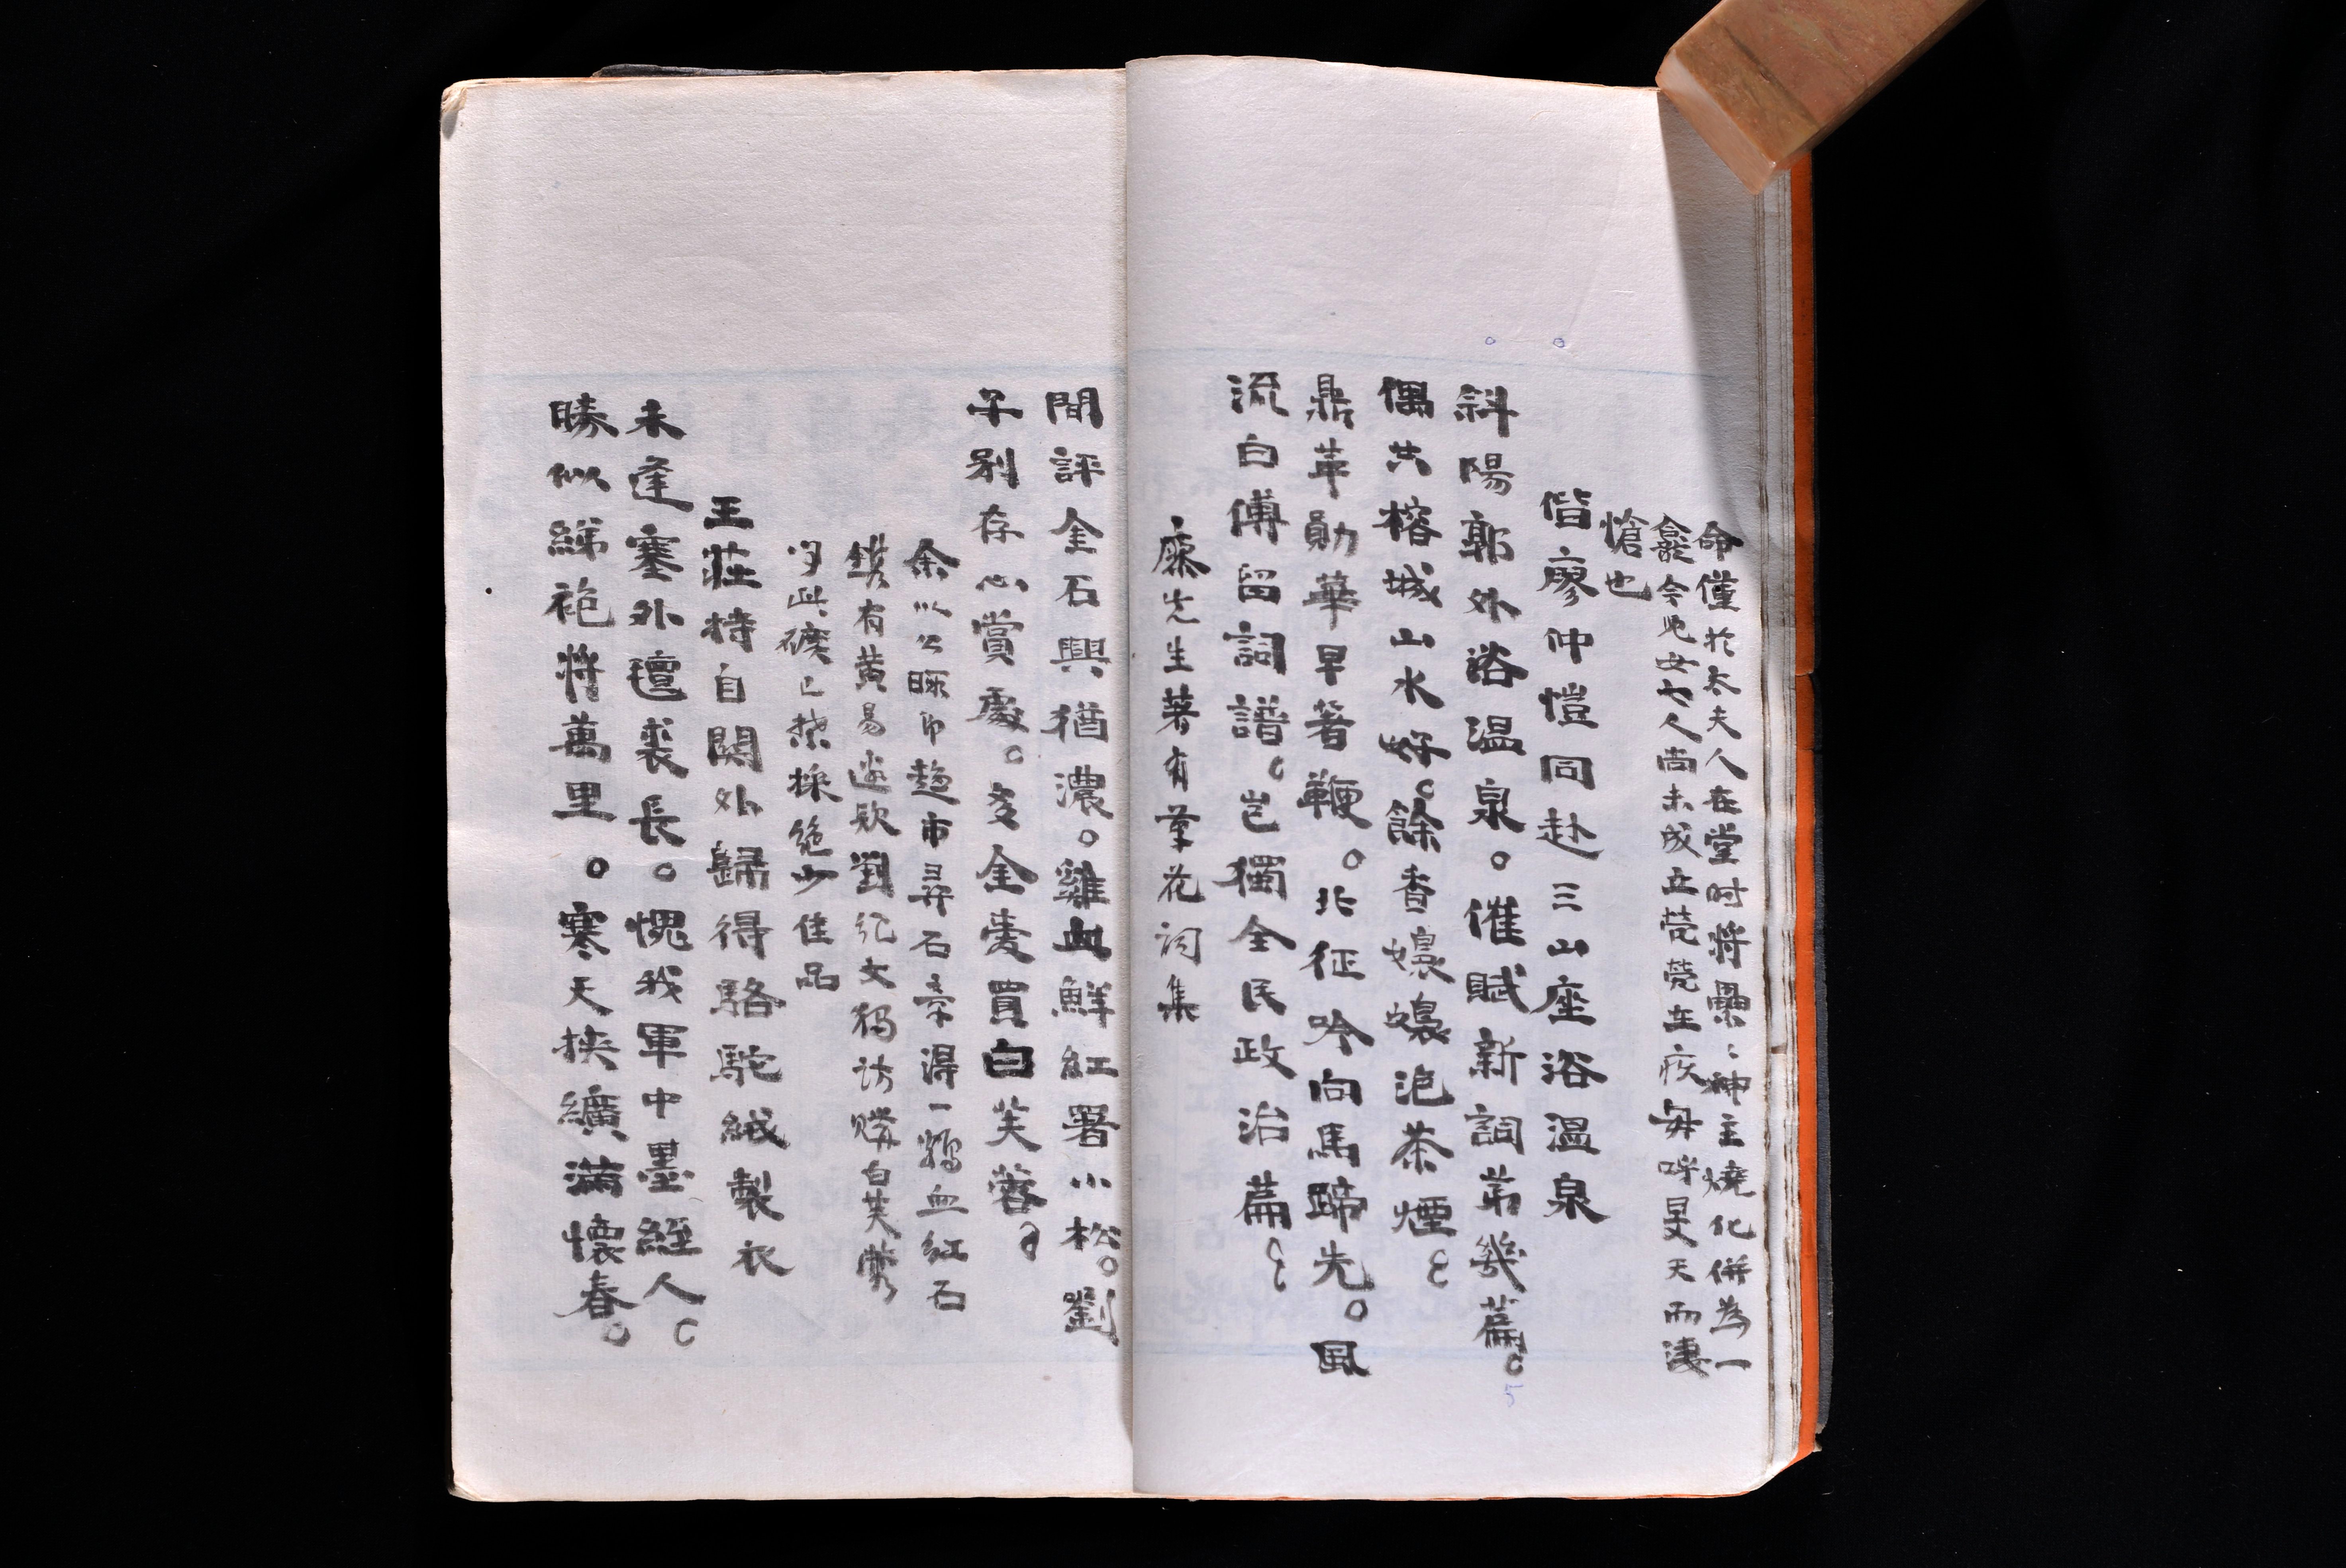 命僅於太夫人在堂时將纍〻神主燒化併為一
龕今兒女七人尚未成立煢煢在疚毎呼旻天而淒
愴也
偕廖仲愷同赴三山座浴温泉
斜陽郭外浴温泉。催賦新詞第幾篇。
偶共榕城山水好。餘香嬝嬝泡茶煙。
鼎革勛華早著鞭。北征吟向馬蹄先。風
流白傅留詞譜。豈獨全民政治篇。
廖先生著有雙花詞集
閒評金石興猶濃。雞血鮮紅署小松。劉
子别存心賞處。多金費買白芙蓉。
余以公暇即趨市尋石章得一鷄血紅石
鐫有黄易邊欵劉紀文獨訪購白芙蓉
因此礦已禁採絶少佳品
王莊持自關外歸得駱駝絨製衣
未逢塞外氊裘長。愧我軍中墨絰人。
勝似綈袍將萬里。寒天挾纊滿懷春。